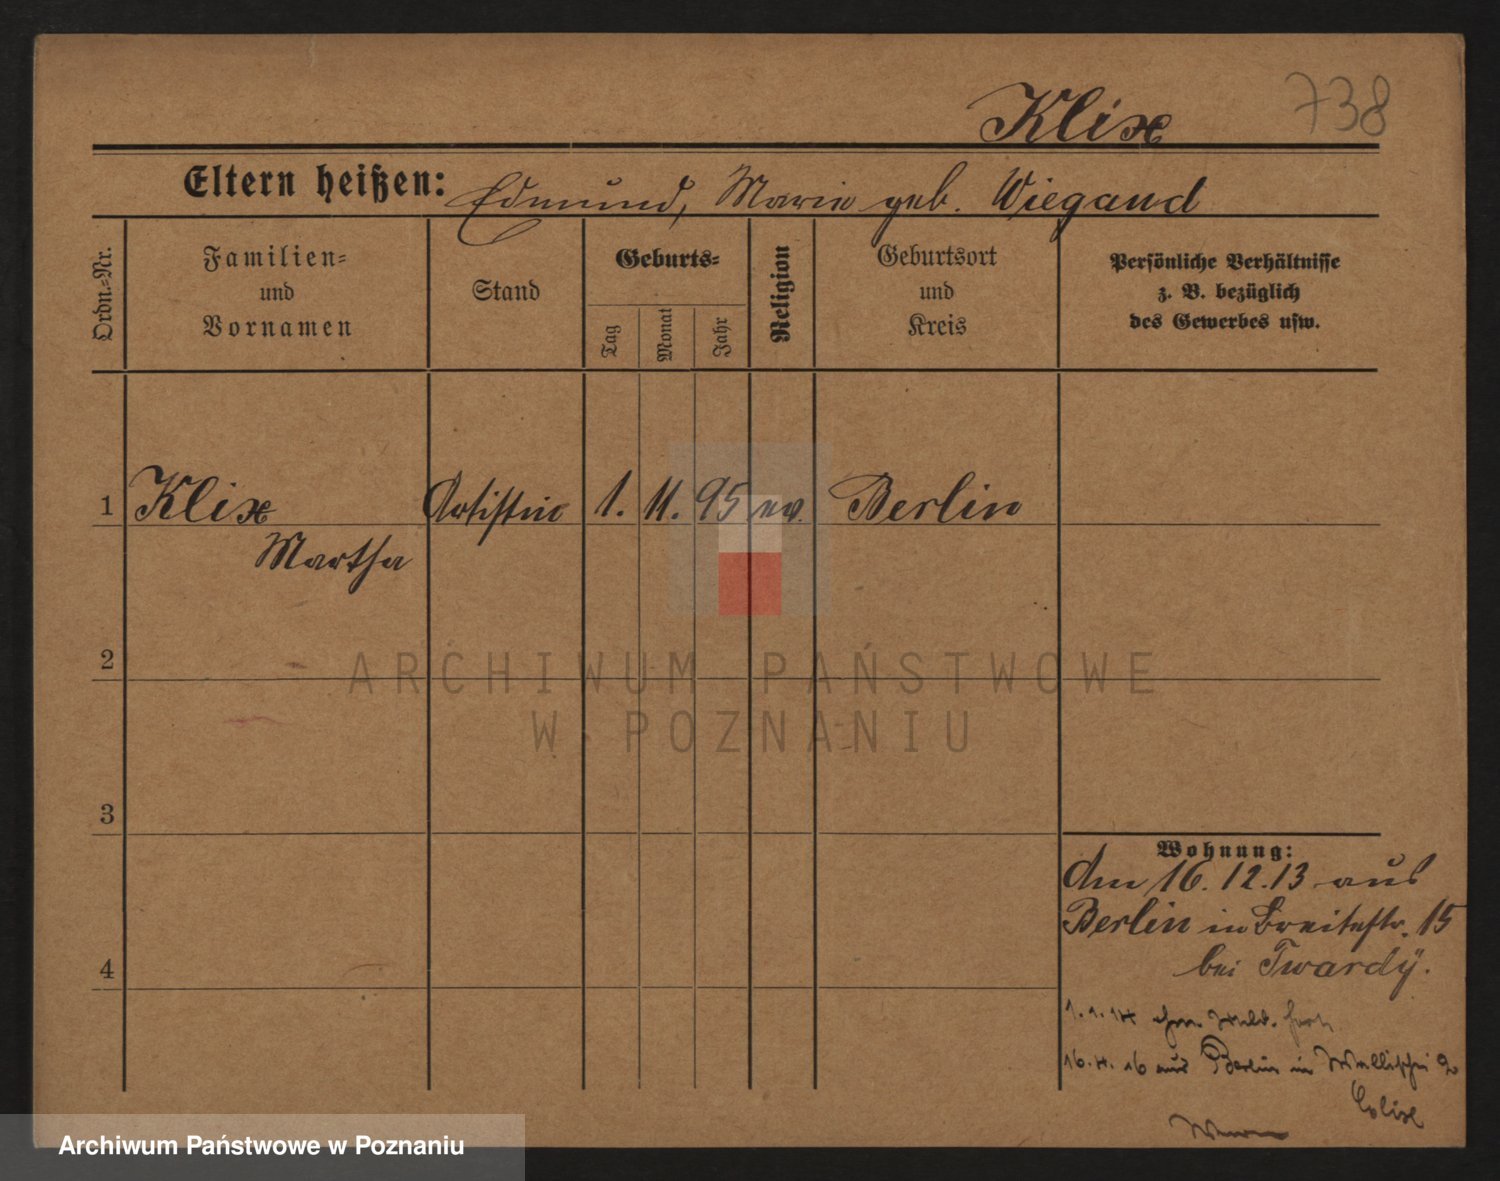 738
Klix
Eltern heißen: Edmund, Marie geb. Wiegand
Ordn.=Nr.
Familien=
und
Vornamen
Stand
Geburts=
Tag
Monat
Jahr
Religion
Geburtsort
und
Kreis
Persönliche Verhältnisse
z. B. bezüglich
des Gewerbes usw.
1 Klix Artistin 1. 11. 95 ev. Berlin
Martha
2
ARCHIWUM PAŃSTWOWE
W POZNANIU
3
Wohnung:
Am 16.12.13 aus
Berlin in Breitestr. 15
4
bei Twardy.
1.1.14
16.4.16 aus Berlin in Wallischei 2
Archiwum Państwowe w Poznaniu